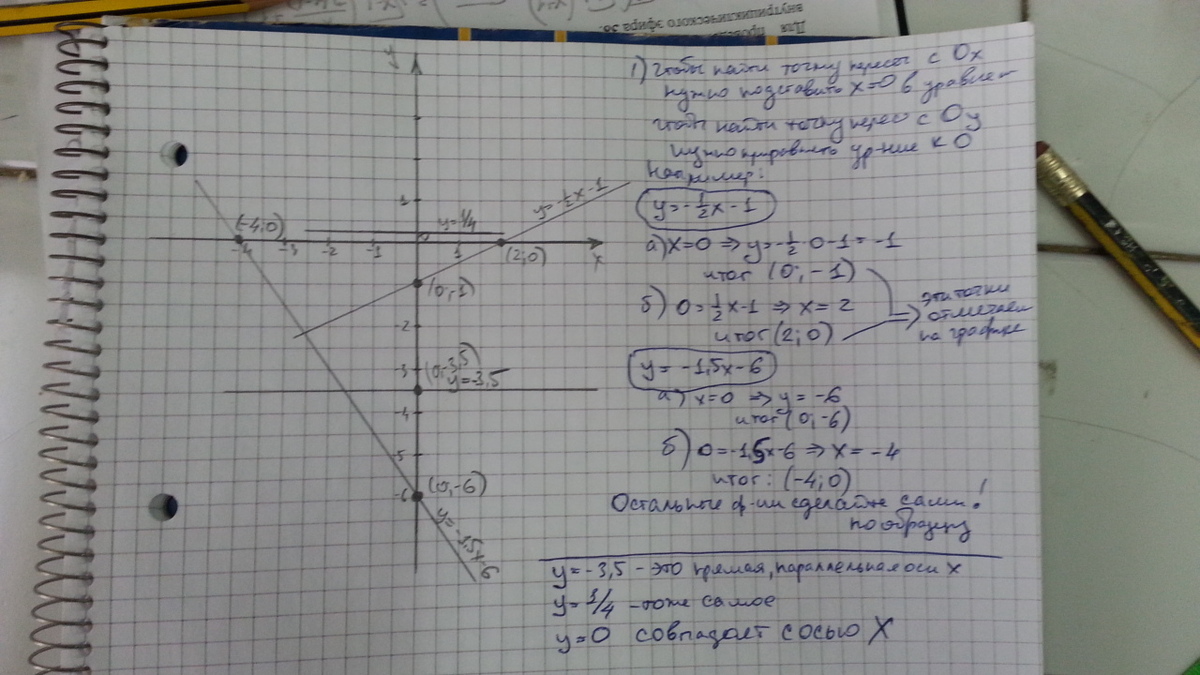 Для
внутрициклического эфира 3б.
y
1
(-4;0)
y=1/4
y=-½x-1
-4 -3 -2 -1 0 1 (2;0) x
(0;-1)
-2
-3 (0;-3,5)
y=-3,5
-4
-5
-6 (0,-6)
1) Чтобы найти точку перес с Ox
нужно подставить x=0 в уравнен
Чтобы найти точку перес с Oy
нужно приравнять ур-ние к 0
Например:
y=-½x-1
а) x=0 ⇒ y=-½·0-1=-1
итог (0;-1)
б) 0=½x-1 ⇒ x=2
итог (2;0)
эти точки
отмечаем
на графике
y=-1,5x-6
а) x=0 ⇒ y=-6
итог (0;-6)
б) 0=-1,5x-6 ⇒ x=-4
итог: (-4;0)
Остальные ф-ии сделайте сами!
по образцу
y=-3,5 - это прямая, параллельная оси x
y=1/4 - тоже самое
y=0 совпадает с осью X